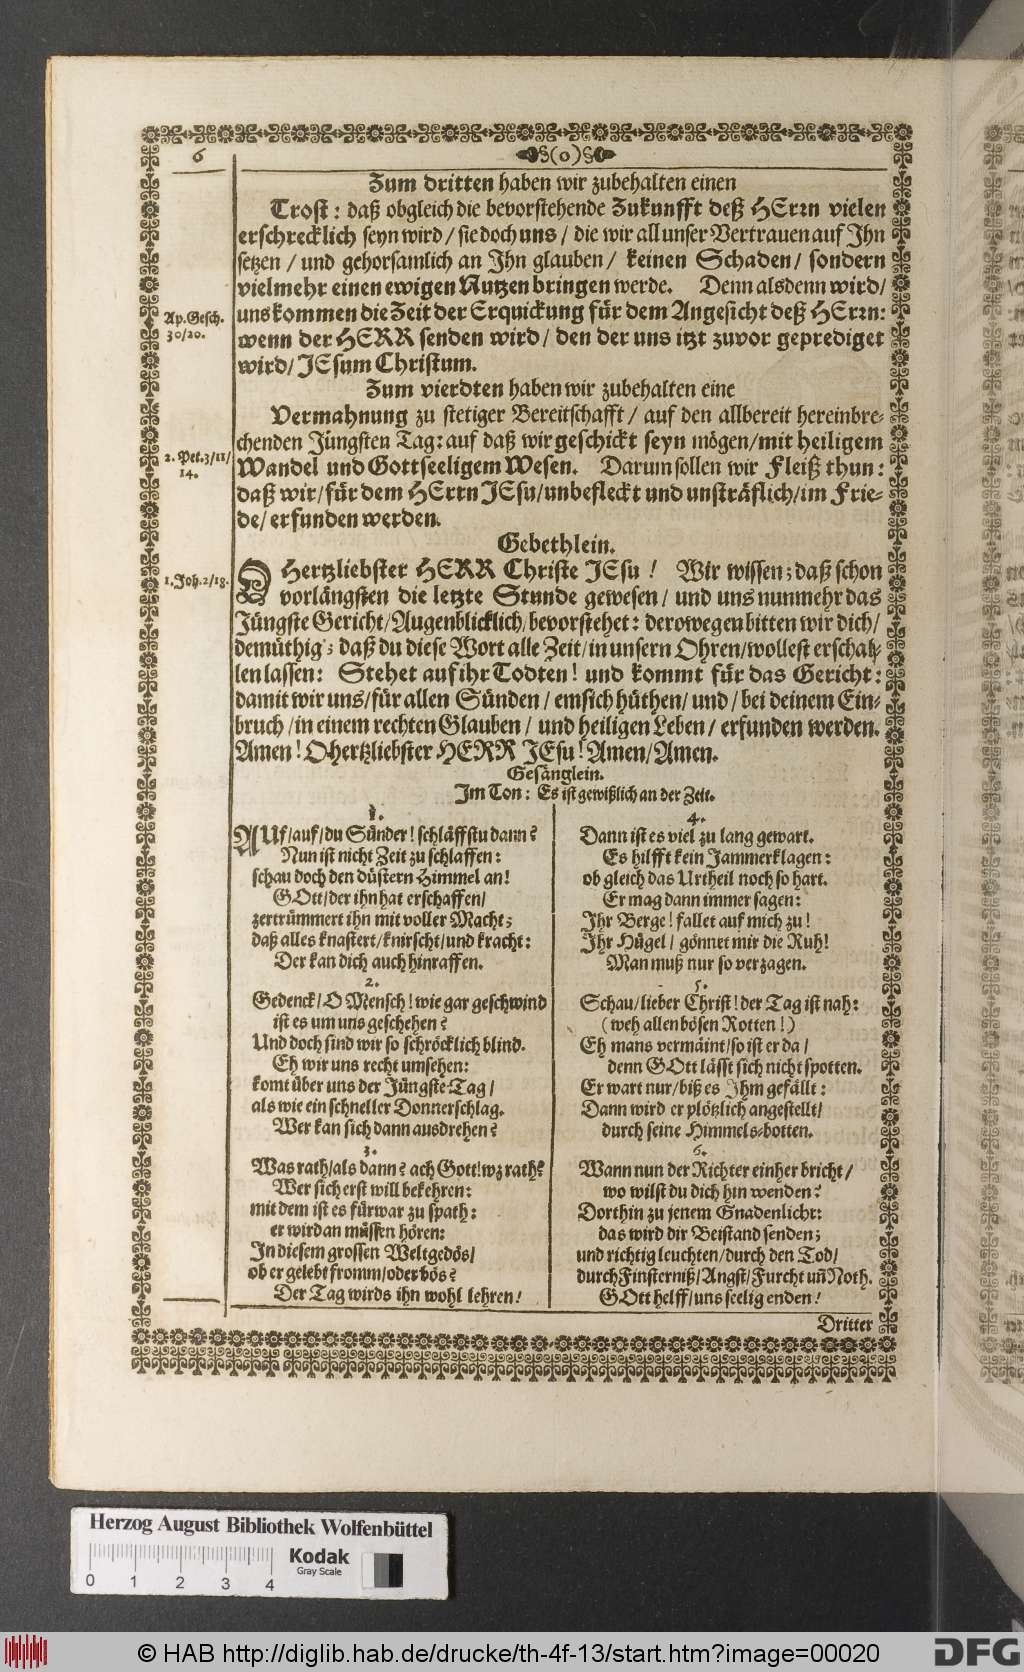 6
(o)
Zum dritten haben wir zubehalten einen
Trost: daß obgleich die bevorstehende Zukunfft deß HErrn vielen
erschrecklich seyn wird / sie doch uns / die wir all unser Vertrauen auf Ihn
setzen / und gehorsamlich an Ihn glauben / keinen Schaden / sondern
vielmehr einen ewigen Nutzen bringen werde. Denn alsdenn wird /
uns kommen die Zeit der Erquickung für dem Angesicht deß HErrn:
Ap. Gesch.
30/20.
wenn der HERR senden wird / den der uns itzt zuvor geprediget
wird / JEsum Christum.
Zum vierdten haben wir zubehalten eine
Vermahnung zu stetiger Bereitschafft / auf den allbereit hereinbre-
chenden Jüngsten Tag: auf daß wir geschickt seyn mögen / mit heiligem
2. Pet. 3/11/
14.
Wandel und Gottseeligem Wesen. Darum sollen wir Fleiß thun:
daß wir / für dem HErrn JEsu / unbefleckt und unsträflich / im Frie-
de / erfunden werden.
Gebethlein.
1. Joh. 2/18.
O Hertzliebster HERR Christe JEsu ! Wir wissen; daß schon
vorlängsten die letzte Stunde gewesen / und uns nunmehr das
Jüngste Gericht / Augenblicklich / bevorstehet: derowegen bitten wir dich /
demüthig; daß du diese Wort alle Zeit / in unsern Ohren / wollest erschal-
len lassen: Stehet auf ihr Todten ! und kommt für das Gericht:
damit wir uns / für allen Sünden / emsich hüthen / und / bei deinem Ein-
bruch / in einem rechten Glauben / und heiligen Leben / erfunden werden.
Amen ! O hertzliebster HERR JEsu ! Amen / Amen.
Gesänglein.
Im Ton: Es ist gewißlich an der Zeit.
1.
AUf / auf / du Sünder ! schläffstu dann ?
Nun ist nicht Zeit zu schlaffen:
schau doch den düstern Himmel an !
GOtt / der ihn hat erschaffen /
zertrümmert ihn mit voller Macht;
daß alles knastert / knirscht / und kracht:
Der kan dich auch hinraffen.
2.
Gedenck / O Mensch ! wie gar geschwind
ist es um uns geschehen ?
Und doch sind wir so schröcklich blind.
Eh wir uns recht umsehen:
komt über uns der Jüngste-Tag /
als wie ein schneller Donnerschlag.
Wer kan sich dann ausdrehen ?
3.
Was rath / als dann ? ach Gott ! wz rath ?
Wer sich erst will bekehren:
mit dem ist es fürwar zu spath:
er wird an müssen hören:
In diesem grossen Weltgedös /
ob er gelebt fromm / oder bös ?
Der Tag wirds ihn wohl lehren !
4.
Dann ist es viel zu lang gewart.
Es hilfft kein Jammerklagen:
ob gleich das Urtheil noch so hart.
Er mag dann immer sagen:
Ihr Berge ! fallet auf mich zu !
Ihr Hügel / gönnet mir die Ruh !
Man muß nur so verzagen.
5.
Schau / lieber Christ ! der Tag ist nah:
(weh allen bösen Rotten !)
Eh mans vermäint / so ist er da /
denn GOtt lässt sich nicht spotten.
Er wart nur / biß es Ihm gefällt:
Dann wird er plötzlich angestellt /
durch seine Himmels-botten.
6.
Wann nun der Richter einher bricht /
wo wilst du dich hin wenden ?
Dorthin zu jenem Gnadenlicht:
das wird dir Beistand senden;
und richtig leuchten / durch den Tod /
durch Finsterniß / Angst / Furcht uñ Noth.
GOtt helff / uns seelig enden !
Dritter
Herzog August Bibliothek Wolfenbüttel
0 1 2 3 4
Kodak
Gray Scale
© HAB http://diglib.hab.de/drucke/th-4f-13/start.htm?image=00020
DFG